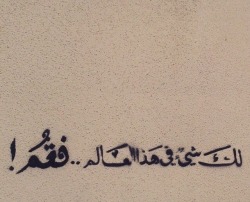 لك شيءٌ في هذا العالم .. فقُم !